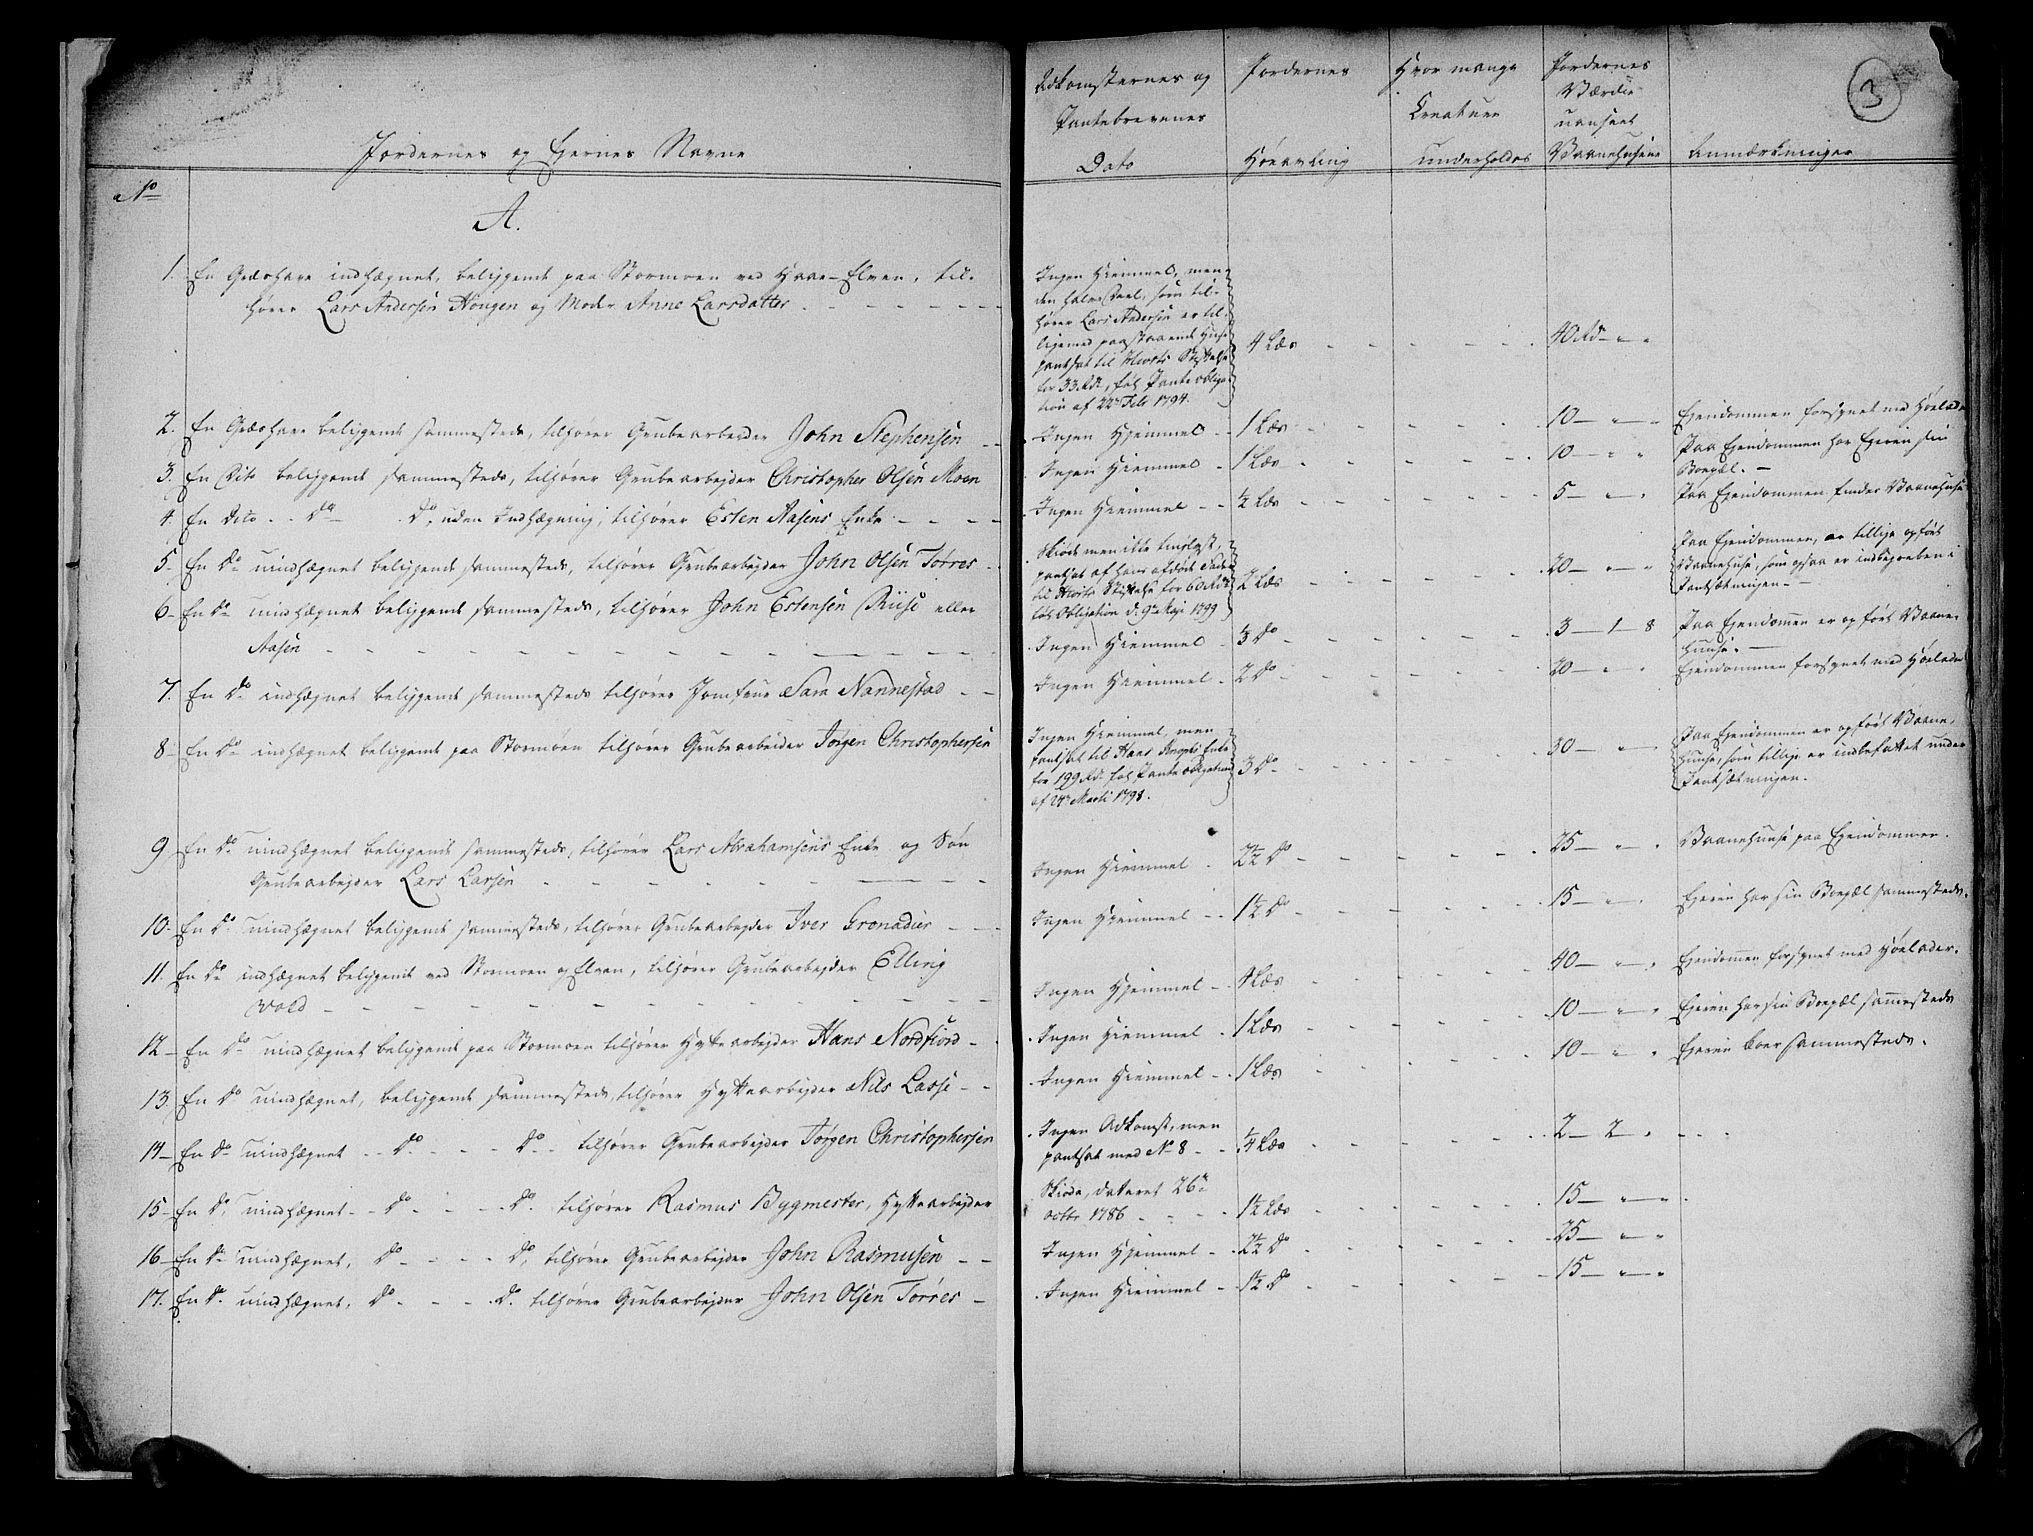 3
Jordernes og Ejernes Navne
No
A.
1. En Græshave indhægnet, beliggende paa Stormoen ved Hraae-Elven, til-
hører Lars Andersen Hougen og Moder Anne Larsdatter
2. En Græshave beliggende sammesteds, tilhører Grubearbejder John Stephensen
3. En Dito beliggende sammesteds, tilhører Grubearbejder Christopher Olsen Moen
4. En Dito . . Do . Do, uden Indhægning, tilhører Esten Aasens Enke
5. En Do uindhægnet beliggende sammesteds, tilhører Grubearbejder John Olsen Torres
6. En Do uindhægnet beliggende sammesteds, tilhører John Estensen Riise eller
Aasen
7. En Do indhægnet beliggende sammesteds tilhører Jomfrue Sara Nannestad
8. En Do indhægnet beliggende paa Stormoen tilhører Grubearbeider Jørgen Christophersen
9 En Do uindhægnet beliggende sammesteds, tilhører Lars Abrahamsens Enke og Søn
Grubearbejder Lars Larsen
10. En Do uindhægnet beliggende sammesteds, tilhører Grubearbejder Iver Gronadier
11. En Do indhægnet beliggende ved Stormoen og Elven, tilhører Grubearbejder Elling
Vold
12 En Do uindhægnet beliggende paa Stormoen tilhører Hyttearbejder Hans Nordfiord
13. En Do uindhægnet, beliggende sammesteds, tilhører Hyttearbejder Nils Lasse
14 En Do uindhægnet Do Do tilhører Grubearbejder Jørgen Christophersen
15 En Do uindhægnet Do Do tilhører Rasmus Bygmester, Hyttearbejder
16 En Do uindhægnet, Do Do, tilhører Grubearbejder John Rasmusen
17. En Do uindhægnet, Do Do. tilhører Grubearbejder John Olsen Torres
Adkomsternes og
Pantebrevenes
Dato
Jordernes
Høeavling
Hvor mange
Creature
underholdes
Jordernes
Værdie
uanseet
Vaanehusene
Anmærkninger
Ingen Hiemmel, men
den halve Deel, som til-
hører Lars Andersen er til-
ligemed paastaaende Huse
pantsat til Hiorts Stiftelse
for 33 Rdr, følg Pante obliga-
tion af 22de Febr 1794.
4 Læs
40 Rd
Ingen Hjemmel
1 Læs
10
Ejendommen forsynet med Høelade
Ingen Hiemmel
1 Læs
10
Paa Ejendommen har Ejeren sin
Boepæl.
Ingen Hiemmel
1/2 Læs
5
Paa Ejendommen findes Vaanehuse
Skiøde men ikke tinglyst,
pantsat af hans afdøde Fader
til Hiorts Stiftelse for 60 Rdr
følg Obligation d. 9de Maji 1799
2 Læs
20
Paa Ejendommen, er tillige opført
Vaanehuse, som ogsaa er indbegreben i
Pantsætningen.
Ingen Hiemmel
1/3 Do
3 1 8
Paa Ejendommen er opført Vaane-
huuse.
Ingen Hiemmel
2 Do
20
Ejendommen forsynet med Høelade
Ingen Hiemmel, men
pantsat til Hans Enke
for 199 Rdr følg Pante obligation
af 24de Martii 1798.
3 Do
30
Paa Ejendommen er opført Vaane-
huuse, som tillige er indbefattet under
Pantsætningen.
Ingen Hiemmel
2 1/2 Do
25
Vaanehuuse paa Ejendommen.
Ingen Hjemmel
1 1/2 Do
15
Ejeren har sin Boepæl sammesteds.
Ingen Hjemmel
4 Læs
40
Ejendommen forsynet med Høelader.
Ingen Hiemmel
1 Læs
10
Ejeren har sin Boepæl sammesteds
Ingen Hiemmel
1 Læs
10
Ejeren boer sammesteds.
Ingen Adkomst, men
pantsat med No 8
1/4 Læs
2 2
Skiøde, dateret 26de
octbr 1786
1 1/2 Læs
15
Ingen Hjemmel
2 1/2 Do
25
Ingen Hiemmel
1 1/2 Do
15